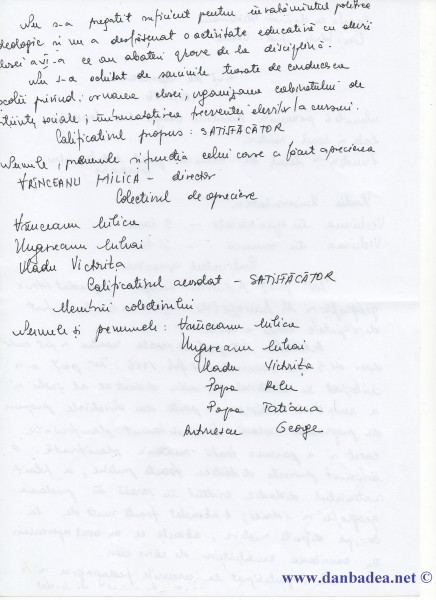 Nu s-a pregătit suficient pentru învățămîntul politico
ideologic și nu a desfășurat o activitate educativă cu elevii
clasei a VII-a ce au abateri grave de la disciplină.
Nu s-a achitat de sarcinile trasate de conducerea
școlii privind: ornarea clasei, organizarea cabinetului de
științe sociale; îmbunătățirea frecvenței elevilor la cursuri.
Calificativul propus: SATISFĂCĂTOR
Numele, prenumele și funcția celui care a făcut aprecierea
VRÎNCEANU MILICA - director
Colectivul de apreciere
Vrînceanu Milica
Ungureanu Mihai
Vladu Victorița
Calificativul acordat - SATISFĂCĂTOR
Membrii colectivului
Numele și prenumele: Vrînceanu Milica
Ungureanu Mihai
Vladu Victorița
Popa Relu
Popa Tatiana
Antonescu George
www.danbadea.net ©